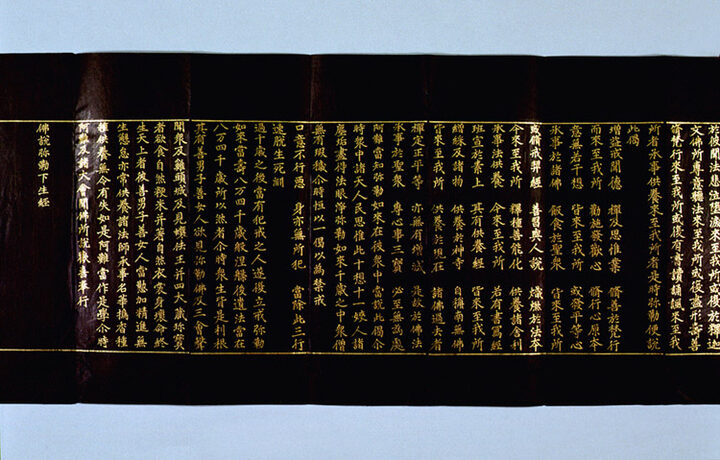 於彼聞法悲泣墮淚來至我所或復於釋迦
文佛所專意聽法來至我所或復盡形壽善
脩梵行來至我所或復有書讀諷誦來至我
所者承事供養來至我所者是時彌勒便說
此偈
增益戒聞德 禪及思惟業 脩善於梵行
而來至我所 勸施發歡心 脩行心原本
意無若干想 皆來至我所 或發平等心
承事於諸佛 飯食於聖衆 皆來至我所
或誦戒契經 善習與人說 熾然於法本
今來至我所 釋種善能化 供養諸舍利
承事法供養 今來至我所 若有書寫經
班宣於素上 其有供養經 皆來至我所
繒綵及諸物 供養於神寺 自稱南無佛
皆來至我所 供養於現在 諸佛過去者
禪定正平等 亦無有增減 是故於佛法
承事於聖衆 專心事三寶 必至無為處
阿難當知彌勒如來在彼衆中當說此偈尒
時衆中諸天人民思惟此十想十一姟人諸
塵垢盡得法眼淨彌勒如來千歲之中衆僧
無有瑕穢尒時恒以一偈以為禁戒
口意不行惡 身亦無所犯 當除此三行
速脫生死淵
過千歲之後當有犯戒之人遂復立戒彌勒
如來當壽八万四千歲般涅槃後遺法當在
八万四千歲所以然者尒時衆生皆是利根
其有善男子善女人欲得見彌勒佛及三會聲
聞衆及翅頭城及見蠰佉王并四大藏珎寶
者欲食自然粳米并著自然衣裳身壞命終
生天上者彼善男子善女人當懃加精進無
生懈怠亦當供養諸法師承事名華擣香種
種供養無令有失如是阿難當作是學尒時
阿難及諸大會聞佛所說歡喜奉行
佛說彌勒下生經